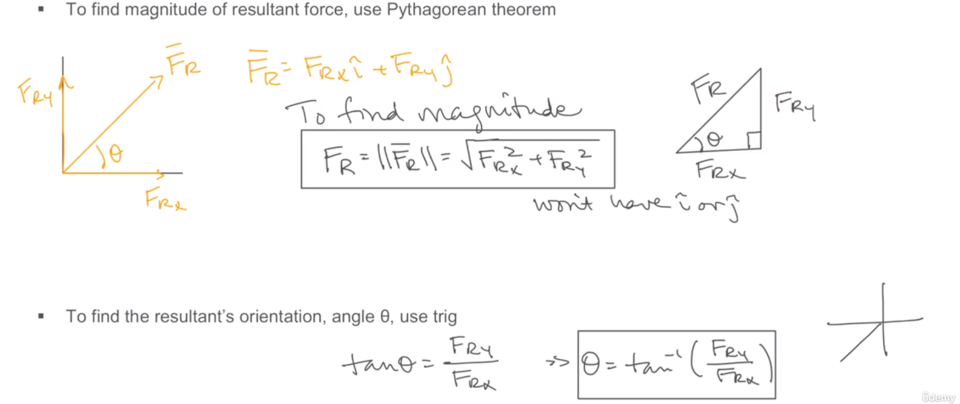 ▪ To find magnitude of resultant force, use Pythagorean theorem
F̄R
FRy
θ
FRx
F̄R = FRx î + FRy ĵ
To find magnitude
FR = ||F̄R|| = √(FRx² + FRy²)
won't have î or ĵ
FR
FRy
θ
FRx
▪ To find the resultant's orientation, angle θ, use trig
tanθ = FRy/FRx >> θ = tan⁻¹(FRy/FRx)
ûdemy